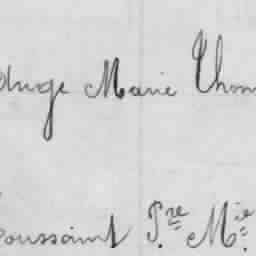 Ange Marie Thom
Toussaint Pre Mie